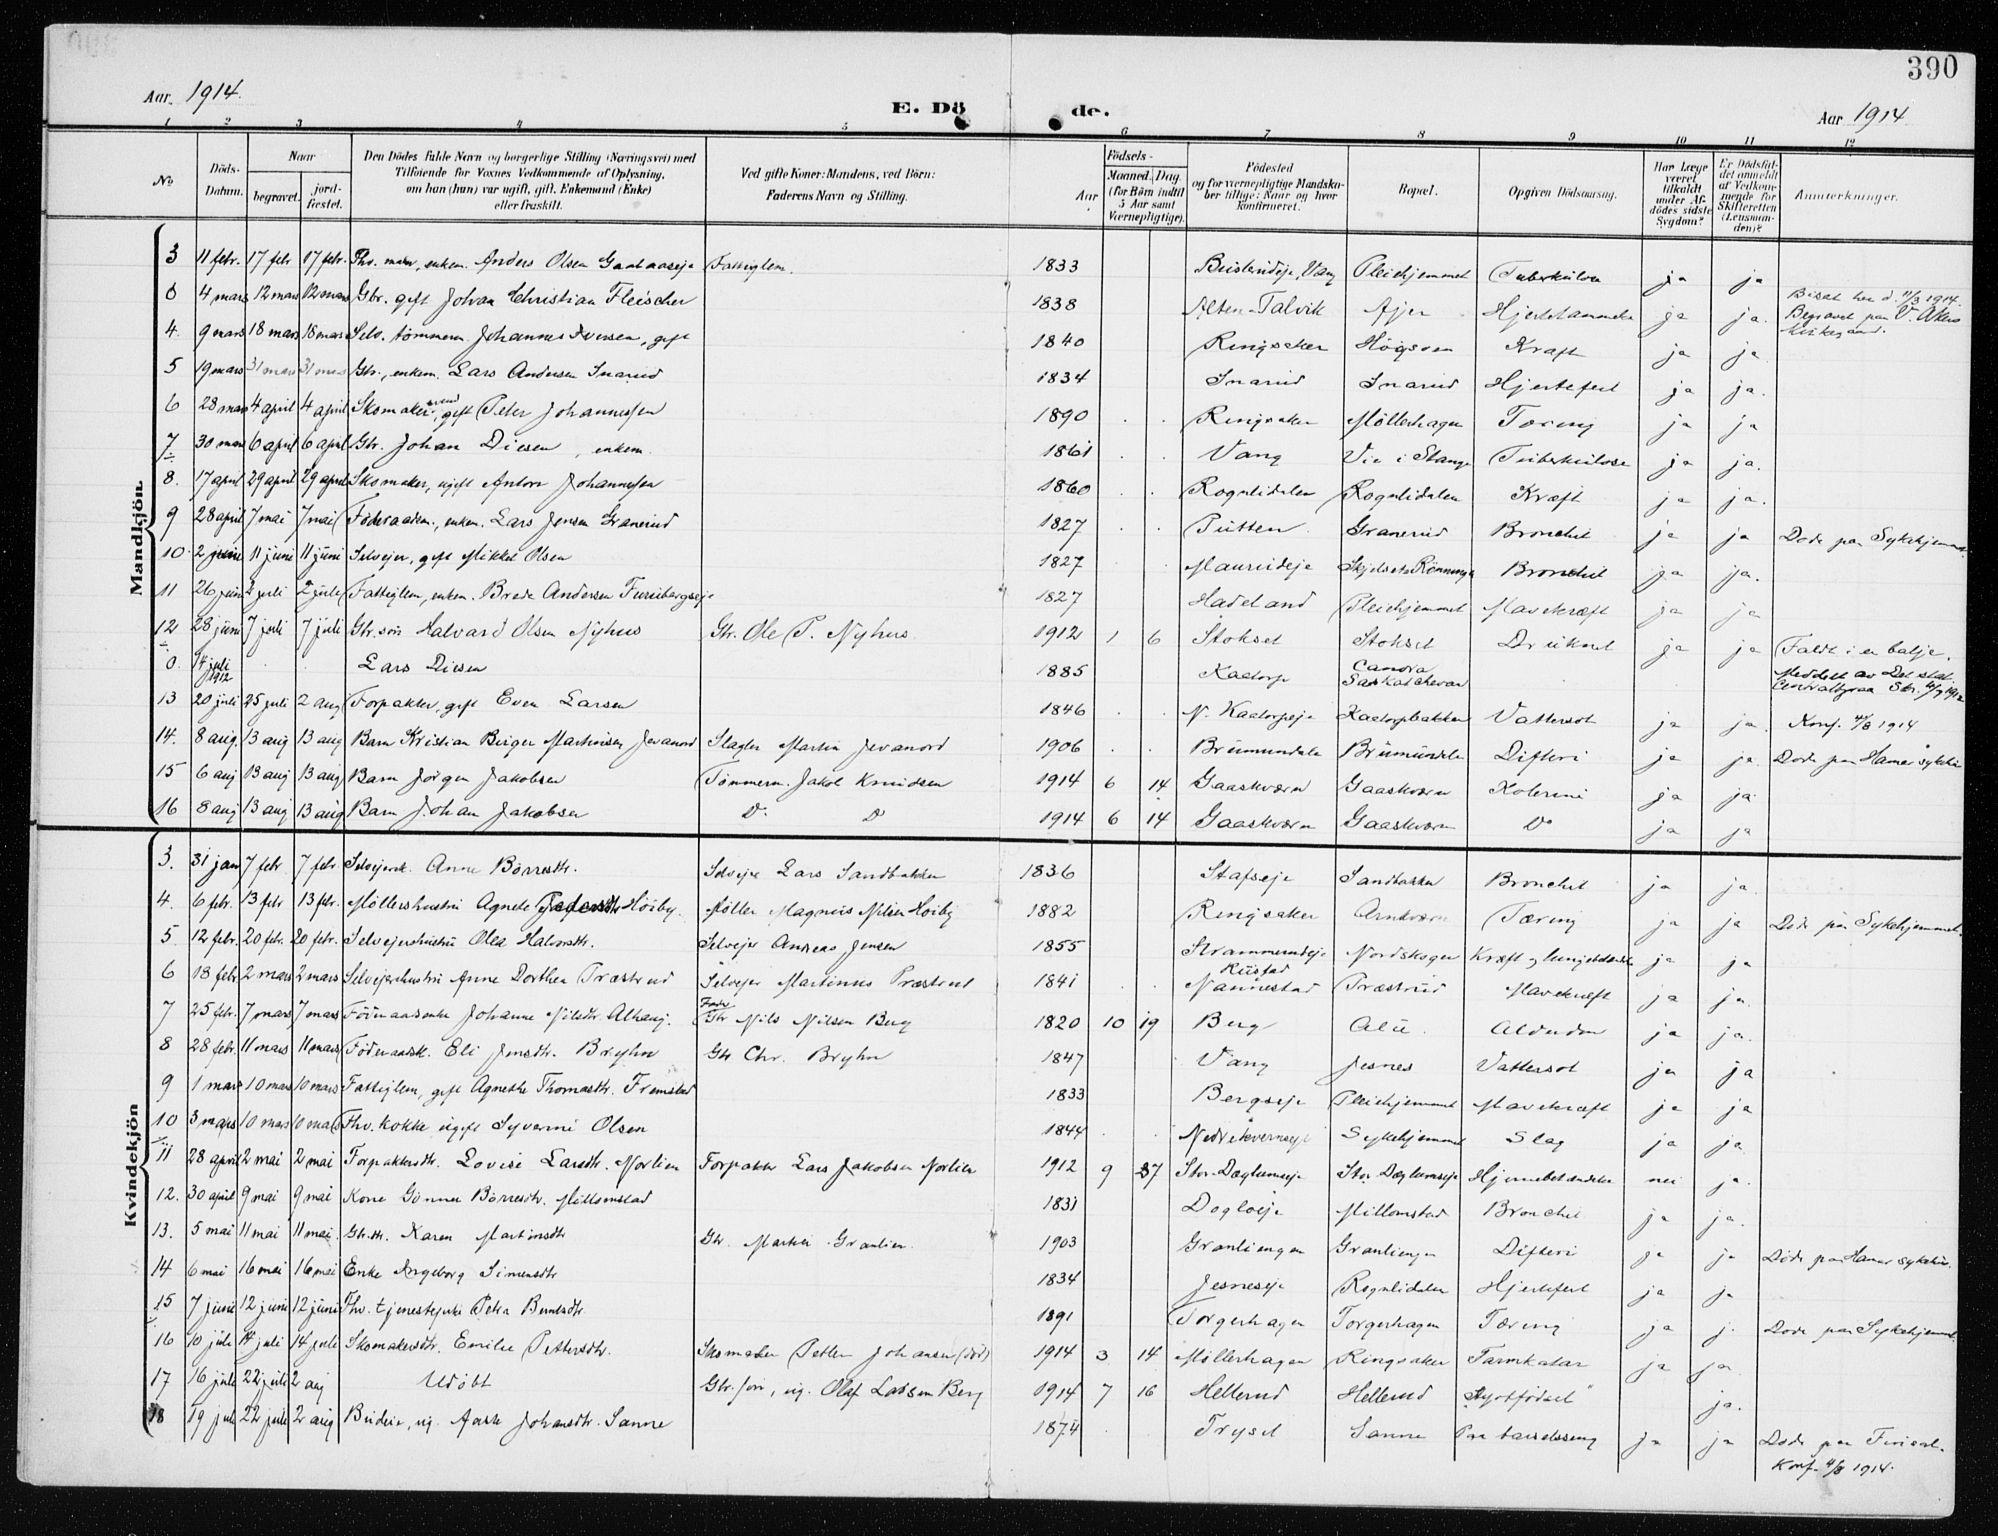 390
Aar 1914. E. Dö de. Aar 1914
1 2 3 4 5 6 7 8 9 10 11 12
No Döds-Datum. Naar begravet. jordfæstet. Den Dödes fulde Navn og borgerlige Stilling (Næringsvei) med Tilföiende for Voxnes Vedkommende af Oplysning, om han (hun) var ugift, gift, Enkemand (Enke) eller fraskilt. Ved gifte Koner: Mandens, ved Börn: Faderens Navn og Stilling. Födsels- Aar Maaned. Dag. (for Börn indtil 5 Aar samt Værnepligtige). Födested og for værnepligtige Mandskaber tillige: Naar og hvor konfirmeret. Bopæl. Opgiven Dödsaarsag. Har Læge været tilkaldt under Afdödes sidste Sygdom? Er Dödsfaldet anmeldt af Vedkommende for Skifteretten (Lensmanden)? Anmerkninger.
Mandkjön.
3 11 febr. 17 febr 17 febr. Fhv. maler, enkem. Anders Olsen Fattiglem. 1833 Vang Pleiehjemmet Tuberkulose ja ja
0 4 mars 12 mars 12 mars Gbr. gift Johan Christian Fleischer 1838 Alten-Talvik Ajer ja ja. Bisat her d. 11/3 1914. Begravet paa V. Akers kirkegaard.
4. 9 mars 18 mars 18 mars Selv. tømmerm. Johannes Iversen, gift 1840 Ringsaker Høgsveen Kræft ja ja.
5 19 mars 31 mars 31 mars Gbr., enkem. Lars Andersen Snarud 1834 Snarud Snarud Hjertefeil ja ja.
6 28 mars 4 april 4 april Skomakersvend, gift Peter Johannessen 1890 Ringsaker Møllerhagen Tæring ja ja
7 30 mars 6 april 6 april Gbr. Johan Diesen, enkem. 1861 Vang Vie i Stange Tuberkulose ja ja.
8. 17 april 29 april 29 april Skomaker, ugift Anton Johannessen 1860 Rognlidalen Rognlidalen Kræft ja ja.
9 28 april 7 mai 7 mai Føderaadsm., enkem. Lars Jensen Granerud 1827 Pütten Granerud Bronchit ja ja Døde paa Sykehjemmet.
10. 2 juni 11 juni 11 juni Selveier, gift Mikkel Olsen 1827 Maurudeje Skjelsets Rønningen Bronchit ja ja.
11 26 juni 2 juli 2 juli Fattiglem, enkem. Brede Andersen Furubergseje 1827 Hadeland Pleiehjemmet Mavekræft ja ja
12 28 juni 7 juli 7 juli Gbr. søn Halvard Olsen Nyhus Gbr. Ole P. Nyhus 1912 1 6 Stokset Stokset Druknet ja ja Faldt i en balje.
0. 14 juli 1912 Lars Diesen 1885 Kaatorp Canada Saskatchewan Meddelt av Det stat. Centralbyraa
13 20 juli 25 juli 2 aug Forpakter, gift Even Larsen 1846 N. Kaatorpeje Kaatorpbakken Vattersot ja ja. Konf. 4/8 1914
14. 8 aug. 13 aug 13 aug Barn Kristian Birger Martinsen Jevanord Slagter Martin Jevanord 1906 Brumundalen Brumundalen Difteri ja ja Døde paa Hamar sykehus
15 6 aug 13 aug 13 aug Barn Jørgen Jakobsen Tømmerm. Jakob Knudsen 1914 6 14 Gaaskværn Gaaskværn Kolerine ja ja.
16 8 aug 13 aug 13 aug Barn Johan Jakobsen Do Do 1914 6 14 Gaaskværn Gaaskværn Do ja ja
Kvindekjön
3. 31 jan 7 febr 7 febr Selveierk. Anne Børresdtr. Selveier Lars Sandbakken 1836 Stafseje Sandbakken Bronchit ja ja.
4. 6 febr. 13 febr 13 febr. Møllershustru Agnete Høiby. Møller Magnus Nilsen Høiby 1882 Ringsaker Arnkværn Tæring ja ja Døde paa Sykehjemmet.
5. 12 febr. 20 febr. 20 febr. Selveiershustru Olea Halvorsdtr. Selveier Andreas Jensen 1855 Nordskogen Kræft og ja ja
6 18 febr 2 mars 2 mars Selveiershustru Anne Dorthea Præstrud Selveier Martinus Præstrud 1841 Rustad Nannestad Præstrud Mavekræft ja ja.
7 25 febr. 7 mars 7 mars Føderaadsenke Johanne Nilsdtr. Alhaug. Fader Gbr Nils Nilsen Berg 1820 10 19 Berg Alu. Alderdom ja ja.
8 28 febr. 11 mars 11 mars Føderaadsk. Eli Jensdtr. Bryhn Gbr Chr. Bryhn 1847 Vang Jesnes Vattersot ja ja
9 1 mars 10 mars 10 mars Fattiglem, gift Agnethe Thomasdtr. Fremstad 1833 Bergseje Pleiehjemmet Mavekræft ja ja
10 3 mars 10 mars 10 mars Fhv. kokke ugift Syverine Olsen 1844 Sykehjemmet Slag ja ja.
11 28 april 2 mai 2 mai Forpaktersdtr. Lovise Larsdtr. Norlien Forpakter Lars Jakobsen Norlien 1912 9 27 Stor-Døglumseje Stor Døglumseje Hjernebetændelse nei ja.
12. 30 april 9 mai 9 mai Kone Gunner Børresdtr. Mellomstad 1831 Dogloeje Millomstad Bronchit ja ja.
13. 5 mai 11 mai 11 mai. Gbr.dtr. Karen Martinsdtr Gbr. Martin Granlien. 1903 Granliengen Granliengen Difteri ja ja Døde paa Hamar sykehus.
14 6 mai 16 mai 16 mai Enke Ingeborg Simensdtr 1834 Jesneseje Rognlidalen Hjertefeil ja ja
15 7 juni 12 juni 12 juni Fhv. tjenestepike Petra Berntsdtr. 1891 Torgerhagen Torgerhagen Tæring ja j. Døde paa Sykehjemmet
16 10 juli 14 juli 14 juli Skomakersdtr. Emilie Pettersdtr. Skomaker Petter Johansen (død) 1914 3 14 Møllerhagen Ringsaker Tarmkatar ja ja.
17 16 juli 22 juli 2 aug Udøbt Gbr. søn, ug. Olaf Larsen Berg 1914 7 16 Hellerud Hellerud "dødfødsel" ja.
18 19 juli 22 juli 2 aug Budeie, ug. Aaste Johansdtr. Sanne 1874 Trysil Sanne Paa barselsseng ja ja Døde paa Konf. 4/8 1914.